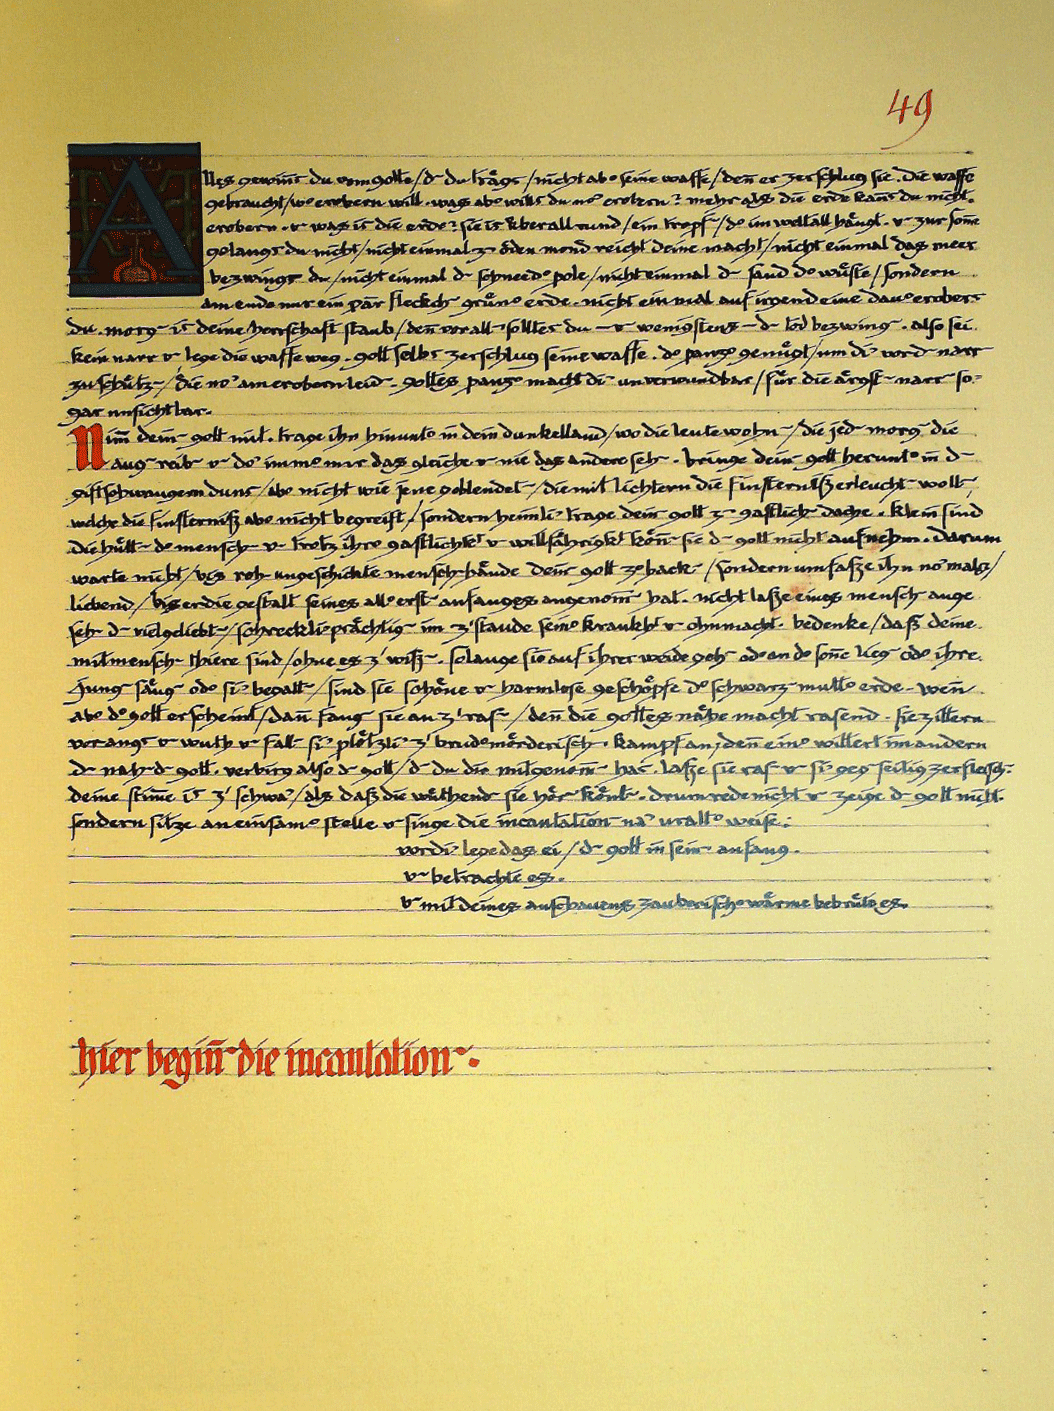 49
Alles gewinnst du vom gotte / d du trägst / nicht abo seine waffe / den̄ er zerschlug sie. Die waffe
gebraucht / wo erobern will. was abo willst du no erobern? mehr als die erde kan̄st du nicht.
erobern. u was ist die erde? sie ist überall rund / ein tropf / do im weltall hängt. u zur son̄e
golangst du nicht / nicht einmal z öden mond reicht deine macht / nicht einmal das meer
bezwingst du / nicht einmal d schnee do pole / nicht einmal d sand do wüste / sondern
am ende nur ein par fleckch grüno erde. nicht einmal auf irgend eine dauo eroberst
du. morg ist deine herrschaft staub / den̄ vor all solltest du — u wenigstens — d tod bezwing. also sei
kein narr u lege die waffe weg. gott selbst zerschlug seine waffe. do panzo genügt / um di vor d narr
zu schütz / die no am erobern leid. gottes panzo macht di unverwundbar / für die ärgst narr so-
gar unsichtbar.
Nim̄ dein gott mit. trage ihn hinunto in dein dunkelland / wo die leute wohn / die jed morg die
aug reib u do immo nur das gleiche u nie das andere seh. bringe dein gott herunto in d
giftschwangern dunst / abo nicht wie jene geblendet / die mit lichtern die finsterniß erleucht wollt
welche die finsterniß abo nicht begreift / sondern heimli trage dein gott z gastlich dache. klein sind
die hütt do mensch u trotz ihro gastlichkt u willfährigkt kön̄ sie d gott nicht aufnehm. darum
warte nicht / bis roh ungeschickte mensch-hände dein gott zo hack / sondern umfaße ihn no mals /
liebend / bis er die gestalt seines allo erst anfanges angenom̄ hat. nicht laße eines mensch auge
seh d vielgeliebt / schreckli prächtig im z'stande seino krankht u ohnmacht. bedenke / daß deine
mitmensch thiere sind / ohne es z' wiß. solange sie auf ihrer weide geh odo an do son̄e lieg odo ihre
jung säug odo si begatt / sind sie schöne u harmlose geschöpfe do schwarz mutto erde. wen̄
abo do gott erscheint / dan̄ fang sie an z' ras / den̄ die gottes nähe macht rasend. sie zittern
vor angst u wuth u fall si plötzli z' brudo mörderisch kampf an, den̄ eino wittert im andern
d nah-d gott. verbirg also d gott / d du dir mitgenom̄ hast. laße sie ras u si geg seitig zerfleisch.
deine stim̄e ist z' schwa / als daß die wüthend sie hör kön̄t. drum rede nicht u zeige d gott nicht.
sondern sitze an einsamo stelle u singe die incantation na uralto weise:
vor di lege das ei / d gott in sein anfang.
u betrachte es.
u mit deines anschauens zauberischo wärme bebrüte es.
hier begin̄ die incantation.